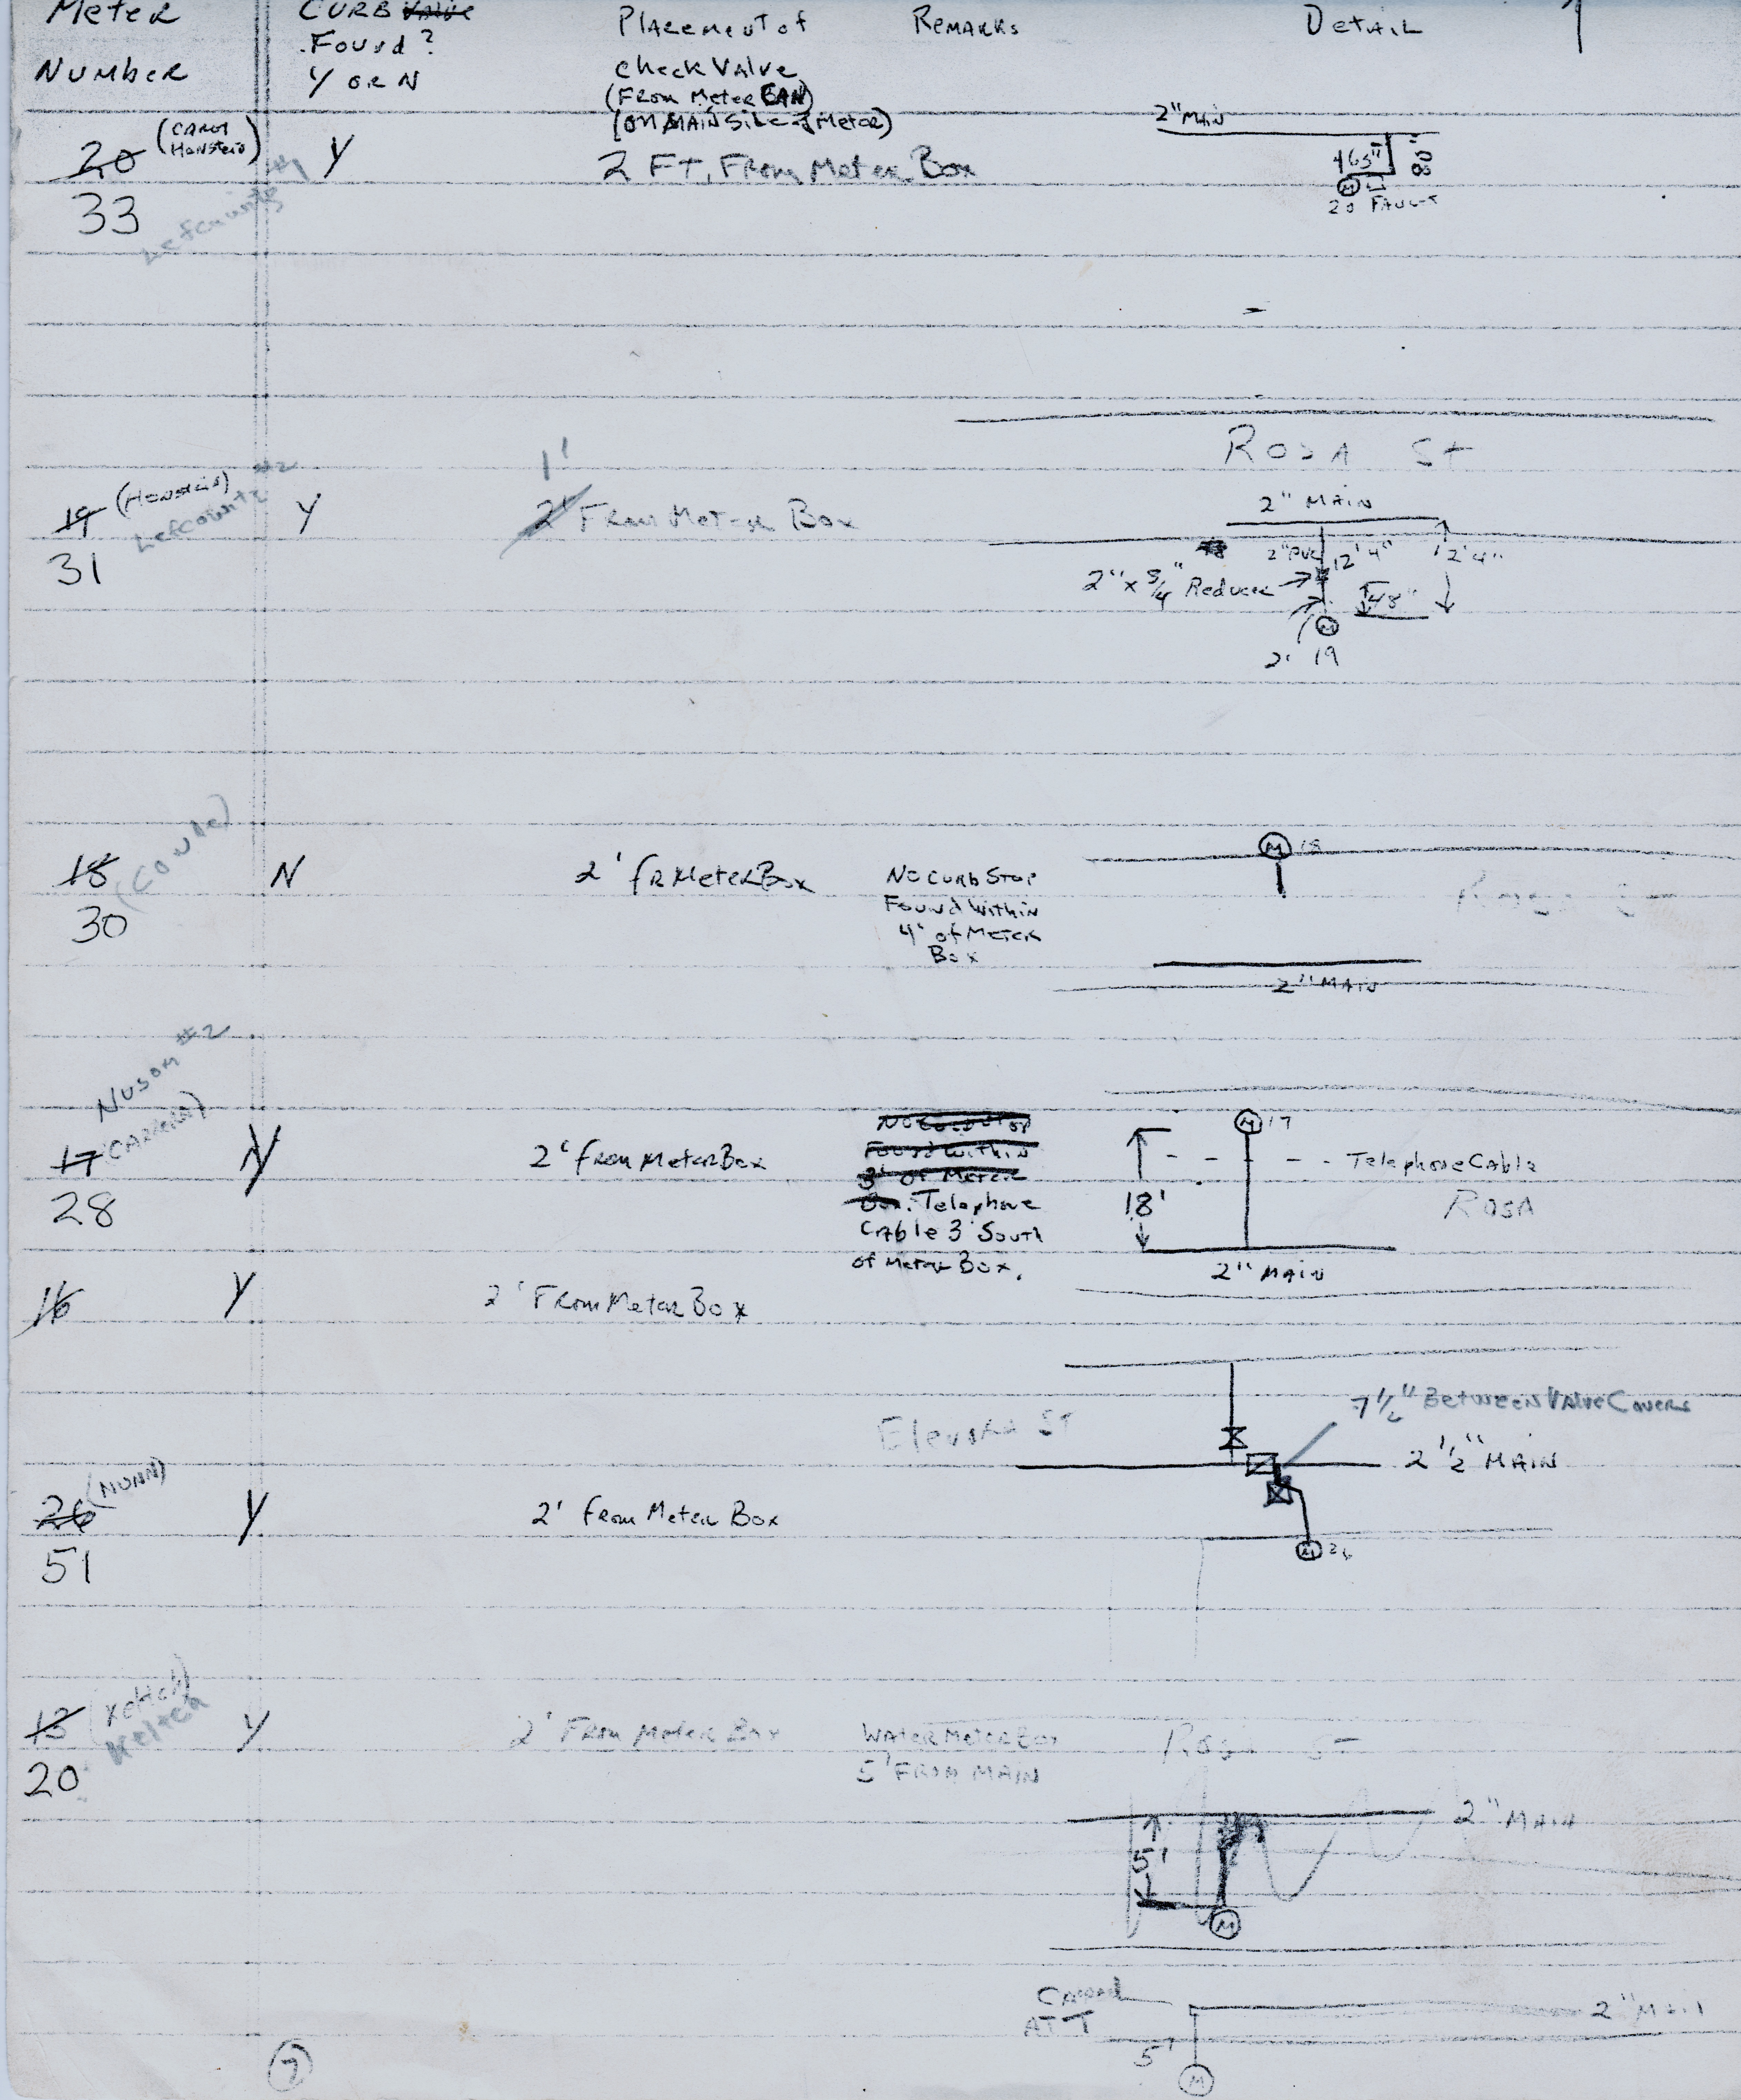 Meter
Number
CURB Valve
Found?
Y OR N
Placement of
Check Valve
(From Meter CAN)
(ON MAIN Side of Meter)
Remarks
Detail
1
20 (CAROL
Honstein)
33
Lefcourte #1
Y
2 FT. From Meter Box
2" MAIN
465"
80"
M
20 FAULT
Rosa St
19 (Honstein)
31
Lefcounte #2
Y
1'
2' From Meter Box
2" MAIN
2" PVC 12'4"
12'4"
2" x 3/4" Reducer
48"
M
2' 19
18
(COUDE)
30
N
2' fr Meter Box
No Curb Stop
Found Within
4' of Meter
Box
M 18
2" MAIN
Nusom #2
17 (CARRERA)
28
Y
2' from Meter Box
No Curb Stop
Found Within
3' of Meter
Box. Telephone
Cable 3' South
of Meter Box.
M 17
Telephone Cable
18'
Rosa
2" MAIN
16
Y
2' From Meter Box
7 1/2" Between Valve Covers
Elevara ST
2 1/2" MAIN
26 (NUNN)
51
Y
2' from Meter Box
M 26
13 (Keltch)
Keltch
20
Y
2' From Meter Box
Water Meter Box
5' From MAIN
Rosa ST
2" MAIN
5'
M
Capped
AT T
2" Main
5'
M
2